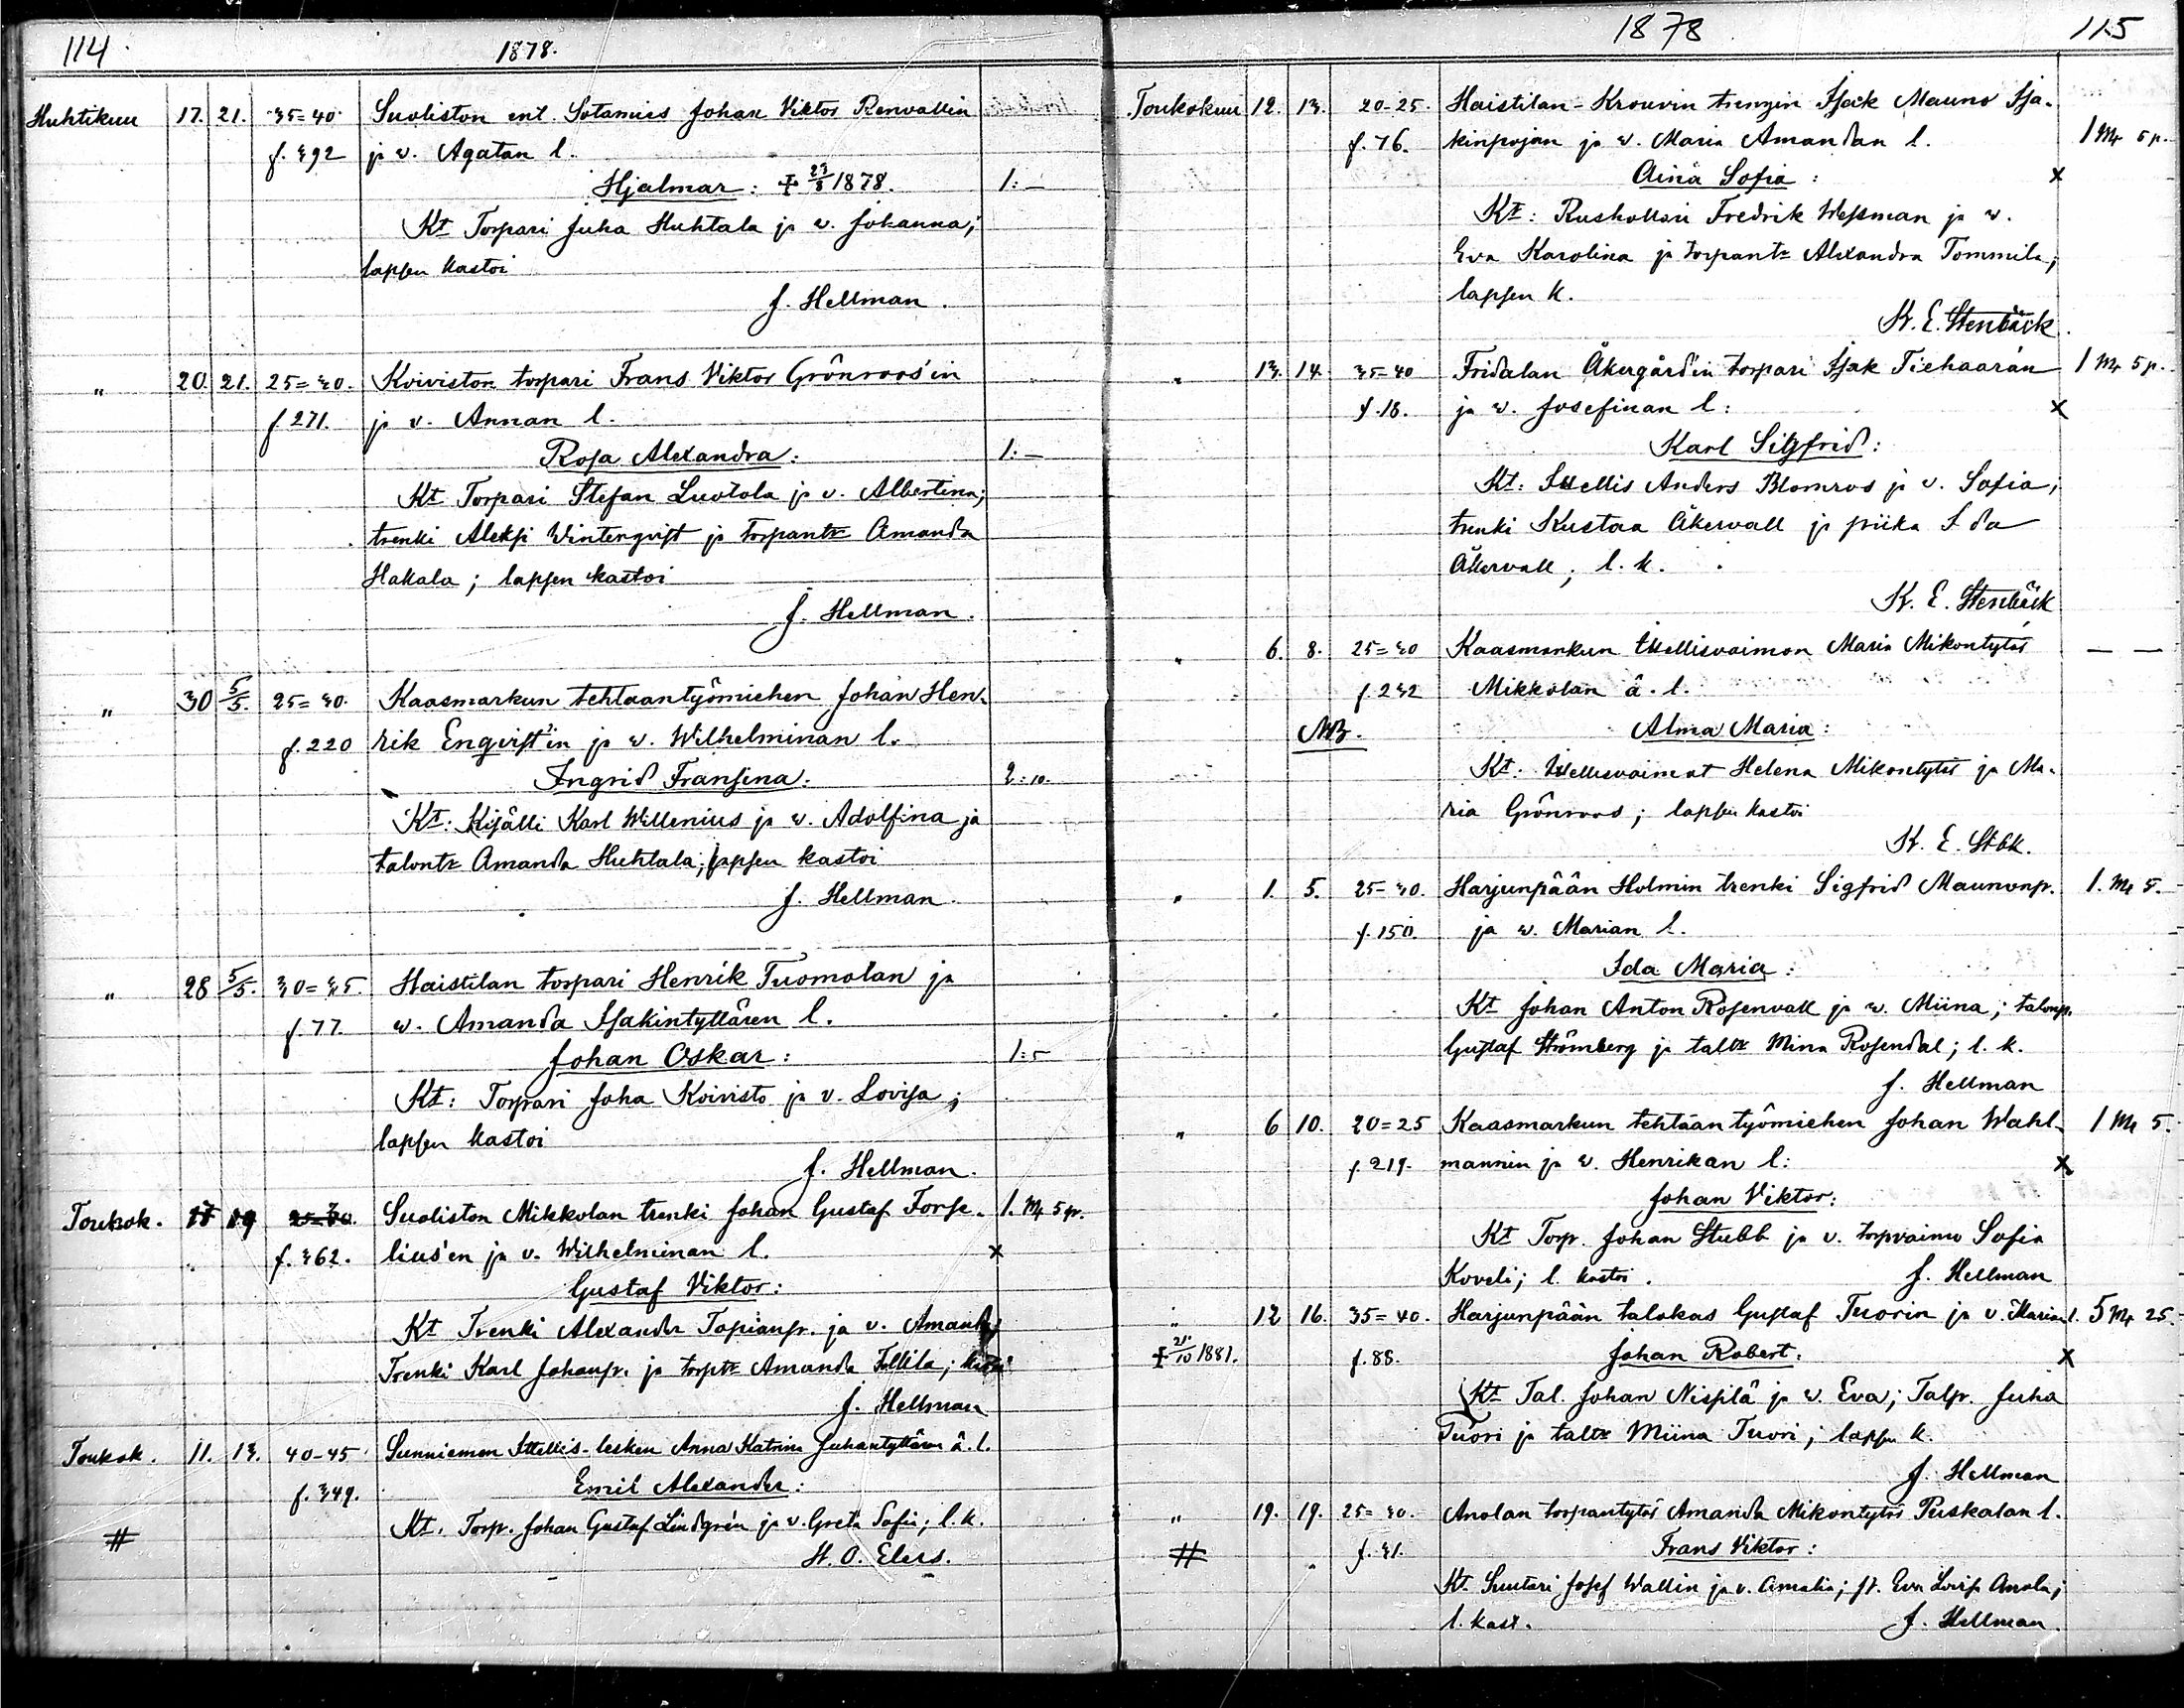 114.
1878.
Huhtikuu 17. 21. 35=40. Suoliston ent. Sotamies Johan Viktor Renvallin
f. 392 ja v. Agatan l.
Hjalmar: ‡ 23/8 1878. 1:—
Kt Torpari Juha Huhtala ja v. Johanna;
lapsen kastoi
J. Hellman.
" 20. 21. 25=30. Koiviston torpari Frans Viktor Grönroos'in
f. 271. ja v. Annan l.
Rosa Alexandra: 1:—
Kt. Torpari Stefan Luotola ja v. Albertina;
trenki Aleksi Winterqvist ja torpantr Amanda
Hakala; lapsen kastoi
J. Hellman.
" 30 5/5. 25=30. Kaasmarkun tehtaantyömiehen Johan Hen-
f. 220 rik Enqvist'in ja w. Wilhelminan l.
Ingrid Fransina: 2:10.
Kt: Kisälli Karl Willenius ja w. Adolfina ja
talontr Amanda Huhtala; lapsen kastoi
J. Hellman.
" 28 5/5. 30=35. Haistilan torpari Henrik Tuomolan ja
f. 77. w. Amanda Isakintyttären l.
Johan Oskar: 1:5
Kt: Torpari Joha Koivisto ja v. Lovisa;
lapsen kastoi
J. Hellman.
Toukok. 17 19 25=30. Suoliston Mikkolan trenki Johan Gustaf Forse- 1. Mk 5 p.
f. 362. lius'en ja v. Wilhelminan l. x
Gustaf Viktor:
Kt Trenki Alexander Tapianp. ja v. Amanda;
Trenki Karl Johanp. ja torptr Amanda Tallila; kastoi
J. Hellman
Toukok. 11. 13. 40-45 Sunniemen Itellis-lesken Anna Katrina Juhantyttären ä. l.
f. 349. Emil Alexander:
# Kt. Torp. Johan Gustaf Lindgrén ja v. Greta Sofia; l. k.
H. O. Elers.
1878
115
Toukokuu 12. 13. 20-25. Haistilan-Krouvin trengin Isak Mauno Isa-
f. 76. kinpojan ja w. Maria Amandan l. 1 Mk 5 p.
Aina Sofia: x
Kt: Rushollari Fredrik Wessman ja w.
Eva Karolina ja torpantr Alexandra Tommila;
lapsen k.
K. E. Stenbäck.
" 13. 14. 35=40 Fridalan Åkergård'in torpari Isak Tiehaaran 1 Mk 5 p.
f. 18. ja w. Josefinan l: x
Karl Sigfrid:
Kt: Itellis Anders Blomroos ja v. Sofia;
trenki Kustaa Åkervall ja piika Ida
Åkervall; l. k.
K. E. Stenbäck
" 6. 8. 25=30 Kaasmarkun Itsellisvaimon Maria Mikontytär — —
f. 232 Mikkolan ä. l.
NB. Alma Maria:
Kt: Itsellisvaimot Helena Mikontytär ja Ma-
ria Grönroos; lapsen kastoi
K. E. Stbk.
" 1. 5. 25=30. Harjunpään Holmin trenki Sigfrid Maununp. 1. Mk 5.
f. 150. ja w. Marian l.
Ida Maria:
Kt Johan Anton Rosenvall ja w. Miina; talonp.
Gustaf Strömberg ja taltr Mina Rosendal; l. k.
J. Hellman
" 6 10. 20=25 Kaasmarkun tehtään työmiehen Johan Wahl- 1 Mk 5.
f. 219. mannin ja w. Henrikan l: x
Johan Viktor:
Kt Torp. Johan Stubb ja v. torpvaimo Sofia
Koveli; l. kastoi. J. Hellman
" 12 16. 35=40. Harjunpään talokas Gustaf Tuorin ja v. Marian l. 5 Mk 25.
‡ 21/10 1881. f. 88. Johan Robert. x
Kt Tal. Johan Nispilä ja w. Eva; Talp. Juha
Tuori ja taltr Miina Tuori; lapsen k.
J. Hellman
" 19. 19. 25=30. Anolan torpantytär Amanda Mikontytär Puskalan l.
# f. 31. Frans Viktor:
Kt. Suutari Josef Wallin ja v. Amalia; Eva Lovisa Anola;
l. kast. J. Hellman.